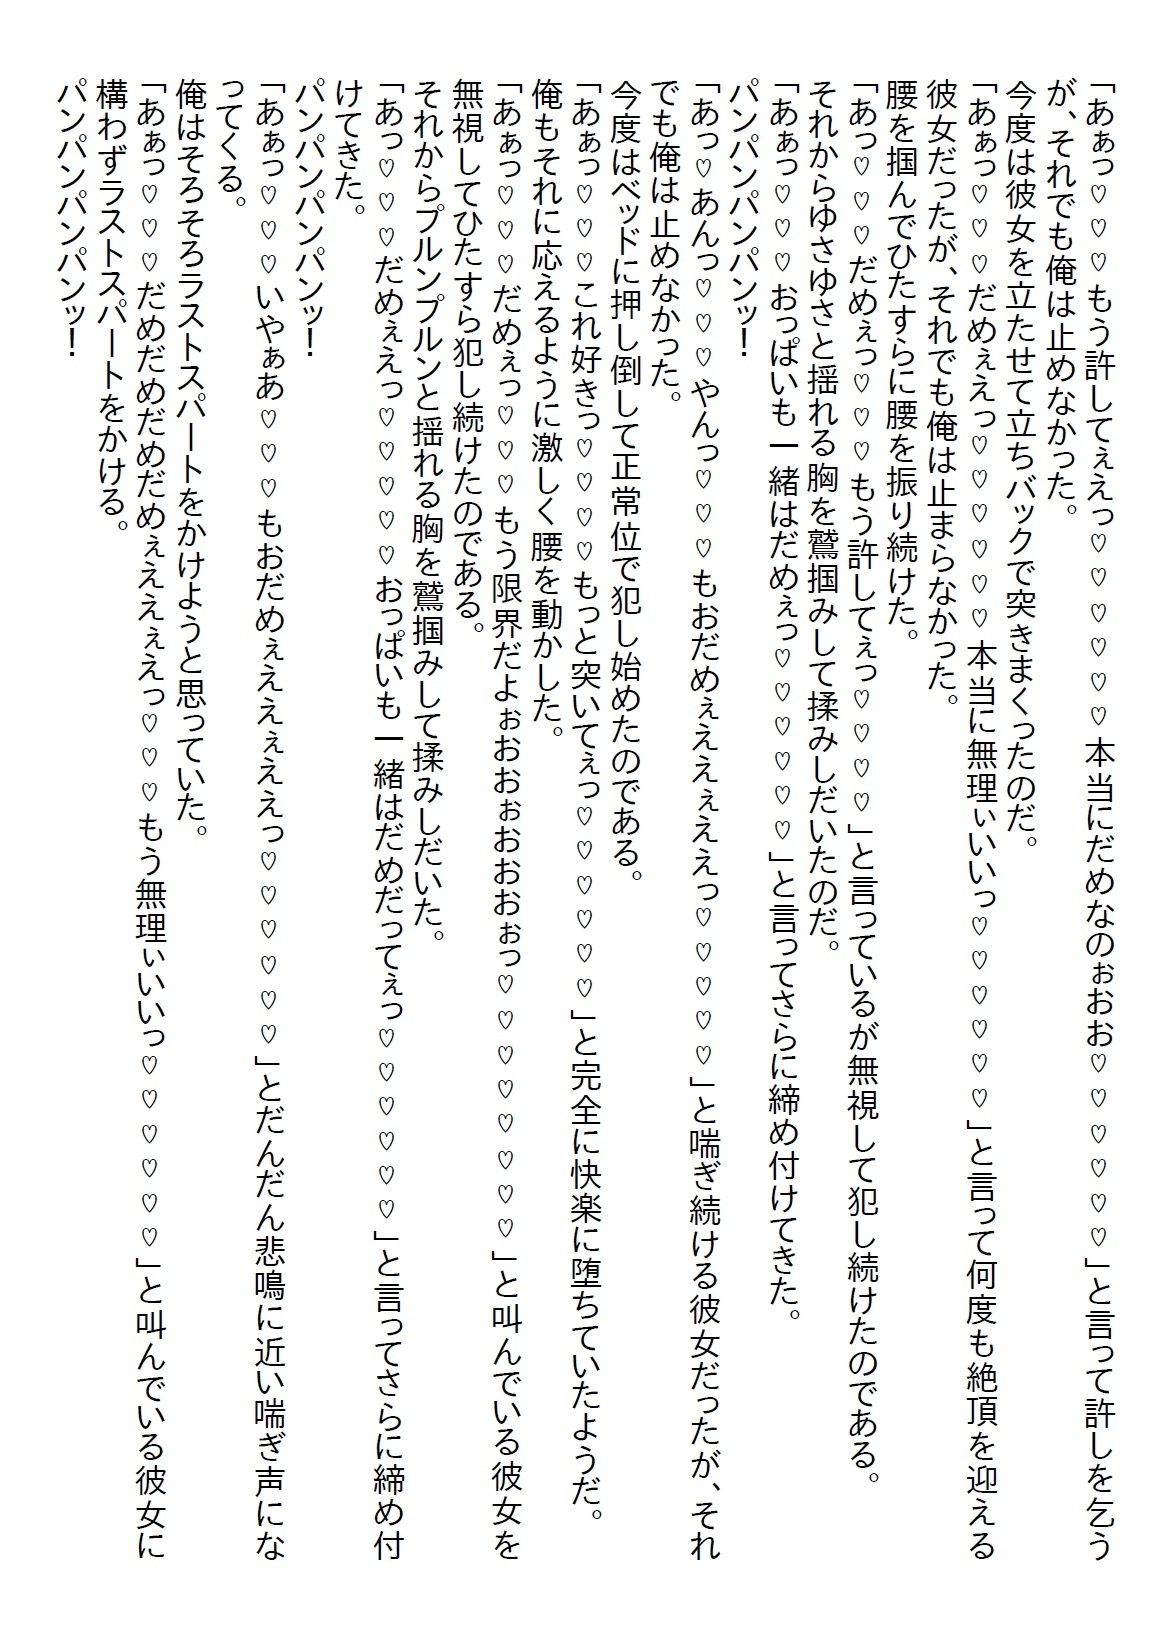 「あぁっ♡♡♡もう許してぇえっ♡♡♡♡♡♡本当にだめなのぉおお♡♡♡♡♡♡」と言って許しを乞う
が、それでも俺は止めなかった。
今度は彼女を立たせて立ちバックで突きまくったのだ。
「あぁっ♡♡♡だめぇえっ♡♡♡♡♡♡本当に無理ぃいいっ♡♡♡♡♡♡」と言って何度も絶頂を迎える
彼女だったが、それでも俺は止まらなかった。
腰を掴んでひたすらに腰を振り続けた。
「あっ♡♡♡だめぇっ♡♡♡もう許してぇっ♡♡♡♡」と言っているが無視して犯し続けたのである。
それからゆさゆさと揺れる胸を鷲掴みして揉みしだいたのだ。
「あぁっ♡♡♡おっぱいも一緒はだめぇっ♡♡♡♡♡♡」と言ってさらに締め付けてきた。
パンパンパンパンッ！
「あっ♡あんっ♡♡♡やんっ♡♡♡もおだめぇええぇええっ♡♡♡♡♡」と喘ぎ続ける彼女だったが、それ
でも俺は止めなかった。
今度はベッドに押し倒して正常位で犯し始めたのである。
「あぁっ♡♡♡これ好きっ♡♡♡♡もっと突いてぇっ♡♡♡♡♡♡」と完全に快楽に堕ちていたようだ。
俺もそれに応えるように激しく腰を動かした。
「あぁっ♡♡♡だめぇっ♡♡♡もう限界だよぉおおぉおおおぉっ♡♡♡♡♡♡♡♡」と叫んでいる彼女を
無視してひたすら犯し続けたのである。
それからプルンプルンと揺れる胸を鷲掴みして揉みしだいた。
「あっ♡♡♡だめぇえっ♡♡♡♡♡おっぱいも一緒はだめだってぇっ♡♡♡♡♡♡」と言ってさらに締め付
けてきた。
パンパンパンパンッ！
「あぁっ♡♡♡いやぁあ♡♡♡もおだめぇええぇええっ♡♡♡♡♡♡」とだんだん悲鳴に近い喘ぎ声にな
ってくる。
俺はそろそろラストスパートをかけようと思っていた。
「あぁっ♡♡♡だめだめだめだめぇええぇえっ♡♡♡もう無理ぃいいっ♡♡♡♡♡♡」と叫んでいる彼女に
構わずラストスパートをかける。
パンパンパンパンッ！